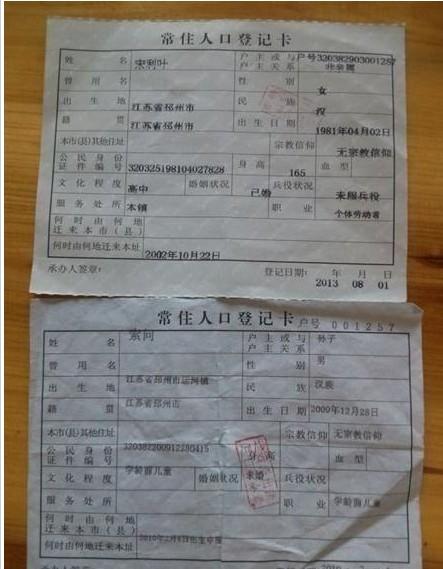 常住人口登记卡
姓名 宋利叶 户主或与户主关系 户号320382903001257 非亲属
曾用名 性别 女
出生地 江苏省邳州市 民族 汉
籍贯 江苏省邳州市 出生日期 1981年04月02日
本市(县)其他住址 宗教信仰 无宗教信仰
公民身份证件编号 320325198104027828 身高 165 血型
文化程度 高中 婚姻状况 已婚 兵役状况 未服兵役
服务处所 本镇 职业 个体劳动者
何时由何地迁来本市(县)
何时由何地迁来本址 2002年10月22日
承办人签章: 登记日期: 年 月 日
2013 08 01
常住人口登记卡 户号 001257
姓名 户主或与户主关系 孙子
曾用名 性别 男
出生地 江苏省邳州市运河镇 民族 汉族
籍贯 江苏省邳州市 出生日期 2009年12月28日
本市(县)其他住址 宗教信仰 无宗教信仰
公民身份证件编号 身高 血型
文化程度 学龄前儿童 婚姻状况 未婚 兵役状况
服务处所 职业 学龄前儿童
何时由何地迁来本市(县)
何时由何地迁来本址